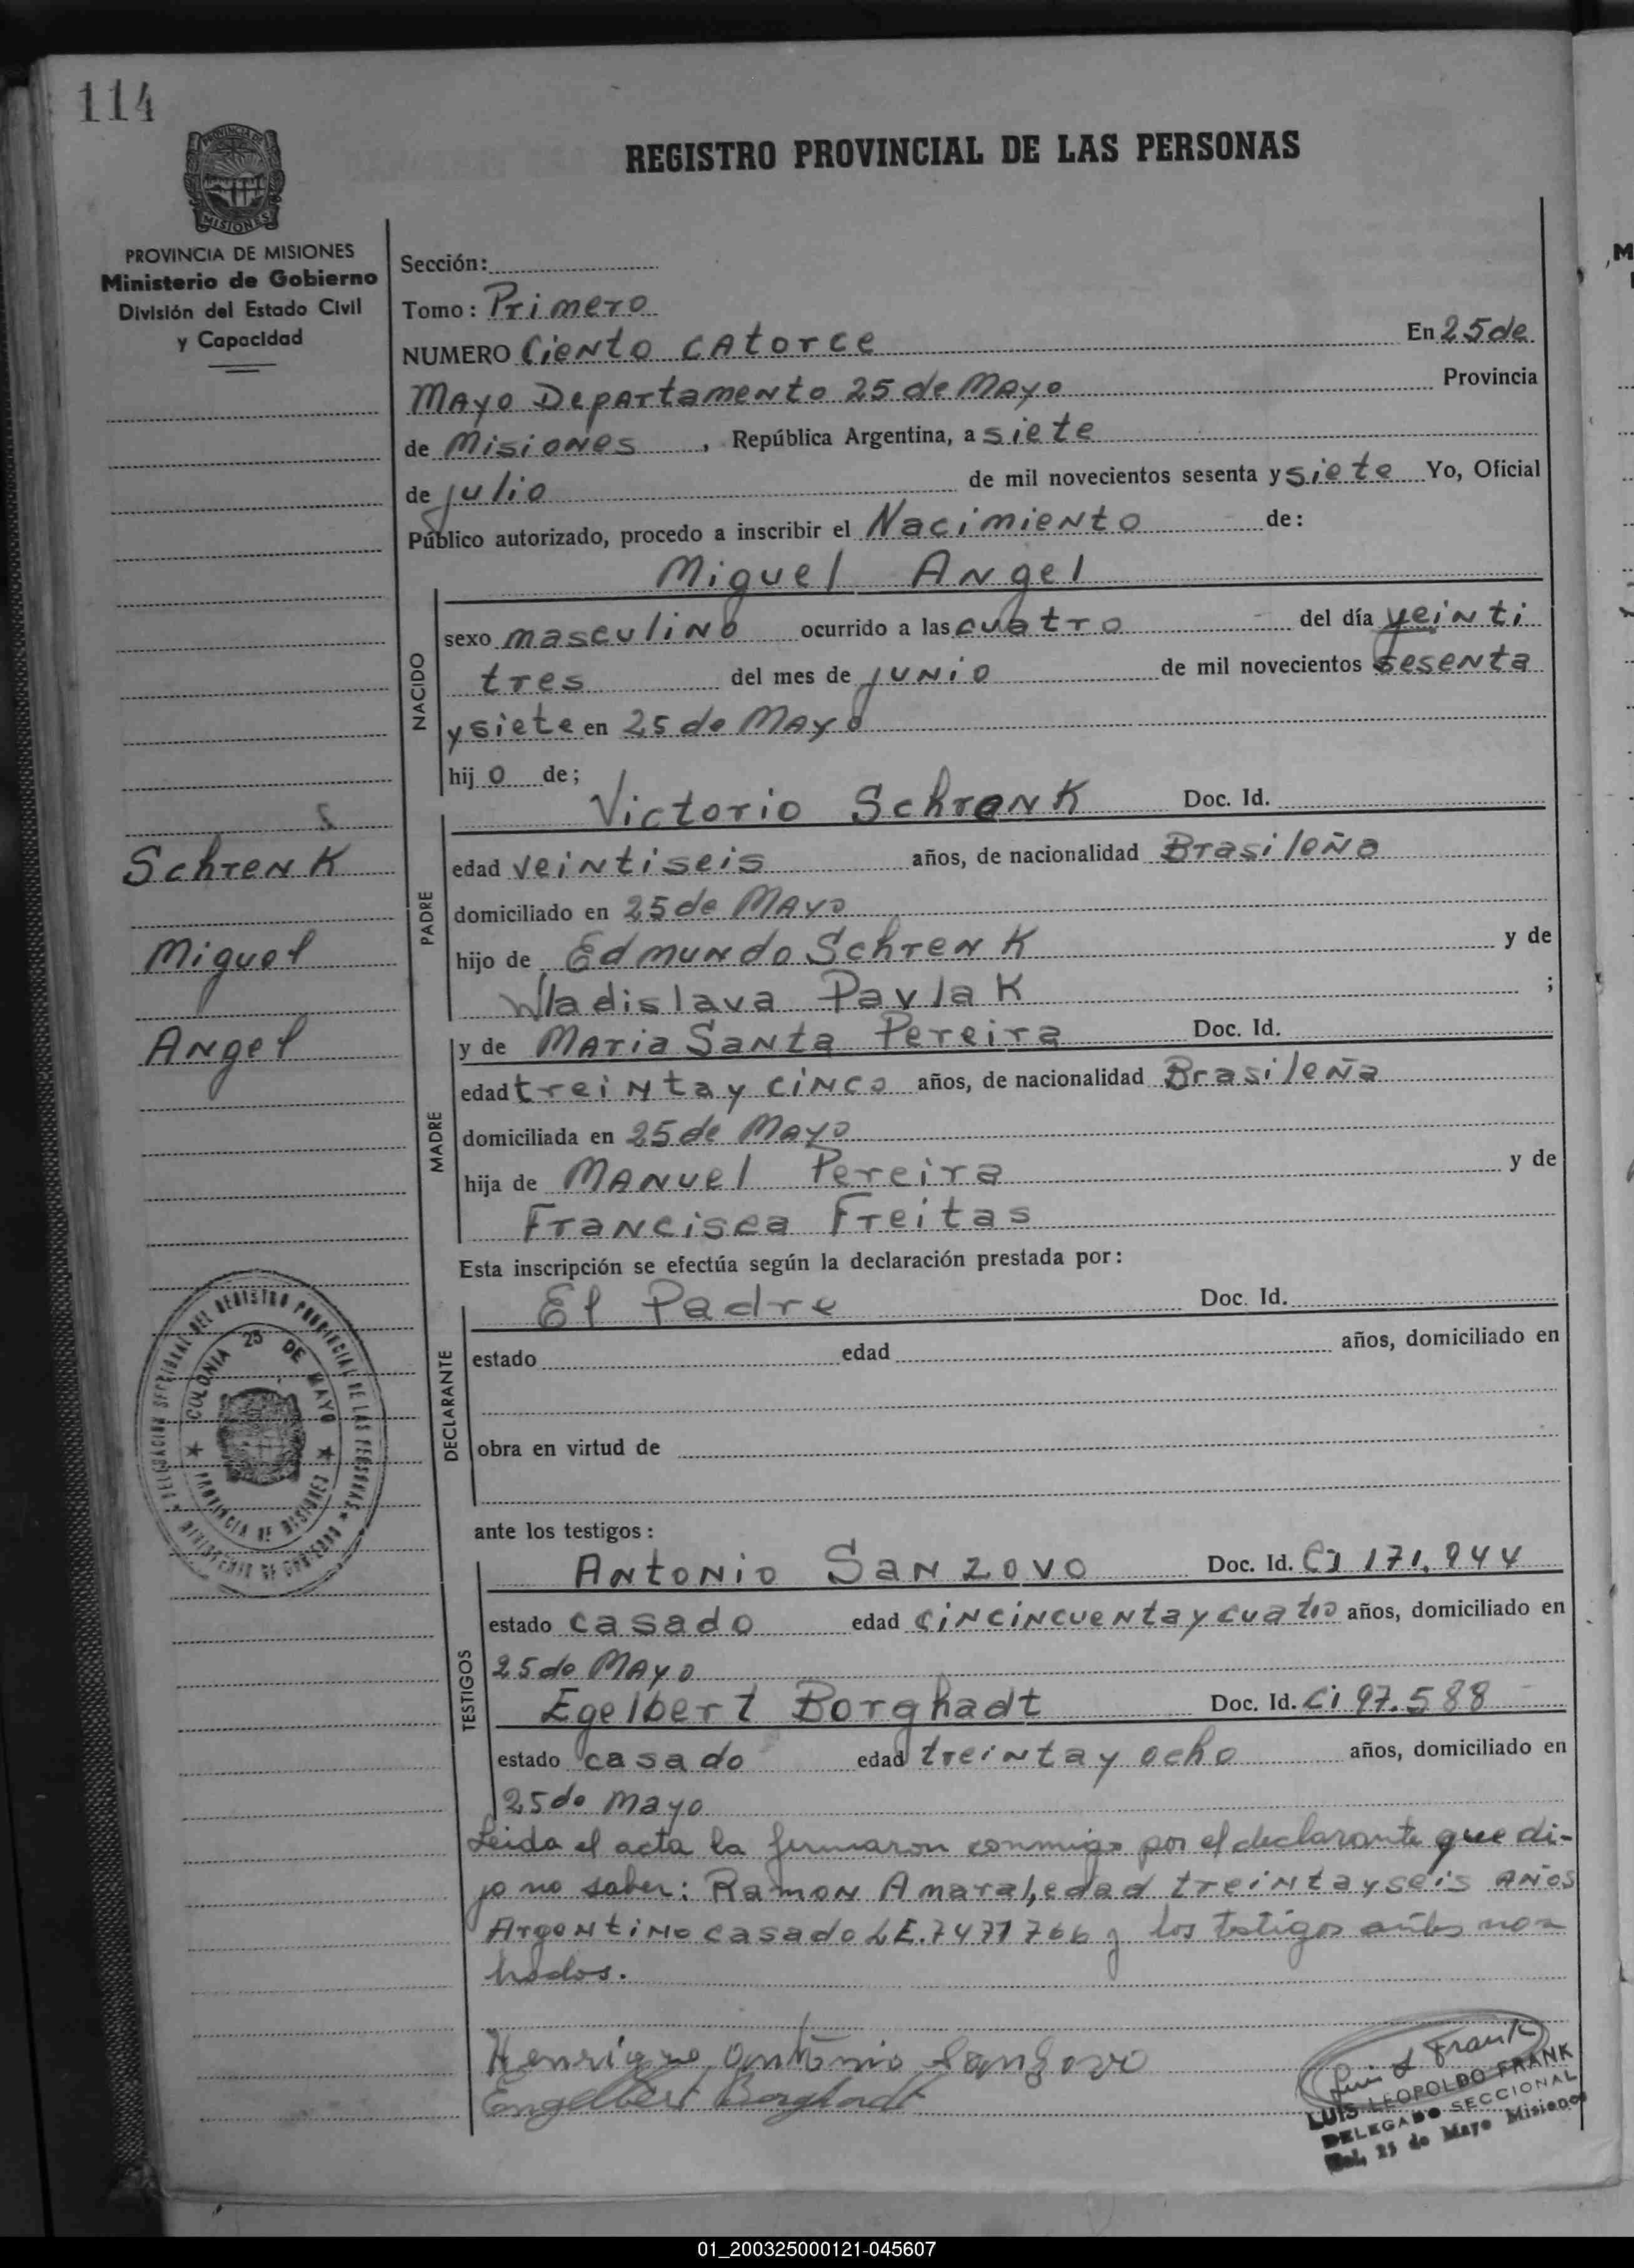 114
REGISTRO PROVINCIAL DE LAS PERSONAS
PROVINCIA DE MISIONES
Ministerio de Gobierno
División del Estado Civil
y Capacidad
Sección:
Tomo: Primero
NUMERO Ciento CAtorce En 25 de
Mayo Departamento 25 de Mayo Provincia
de Misiones, República Argentina, a siete
de julio de mil novecientos sesenta y siete Yo, Oficial
Público autorizado, procedo a inscribir el Nacimiento de:
Miguel Angel
NACIDO
sexo masculino ocurrido a las cuatro del día veinti
tres del mes de junio de mil novecientos sesenta
y siete en 25 de Mayo
hijo de;
Victorio Schrenk Doc. Id.
Schrenk
Miguel
Angel
PADRE
edad veintiseis años, de nacionalidad Brasileña
domiciliado en 25 de Mayo
hijo de Edmundo Schrenk y de
Wladislava Pavlak ;
y de Maria Santa Pereira Doc. Id.
MADRE
edad treinta y cinco años, de nacionalidad Brasileña
domiciliada en 25 de Mayo
hija de Manuel Pereira y de
Francisca Freitas
Esta inscripción se efectúa según la declaración prestada por:
El Padre Doc. Id.
DECLARANTE
estado edad años, domiciliado en
obra en virtud de
DELEGACION SECCIONAL DEL REGISTRO PROVINCIAL DE LAS PERSONAS
MINISTERIO DE GOBIERNO
COLONIA 25 DE MAYO
PROVINCIA DE MISIONES
ante los testigos:
Antonio Sanzovo Doc. Id. CI 171.944
TESTIGOS
estado casado edad cincincuenta y cuatro años, domiciliado en
25 de Mayo
Egelbert Borghadt Doc. Id. Ci 97.588
estado casado edad treinta y ocho años, domiciliado en
25 de Mayo
Leida el acta la firmaron conmigo por el declarante que di-
jo no saber: Ramon Amaral, edad treinta y seis años
Argentino casado LE. 7471766 y los testigos antes nom
brados.
Henrique Antônio Sanzovo
Engelbert Borghadt
Luis L Frank
LUIS LEOPOLDO FRANK
DELEGADO SECCIONAL
Col. 25 de Mayo Misiones
01_200325000121-045607